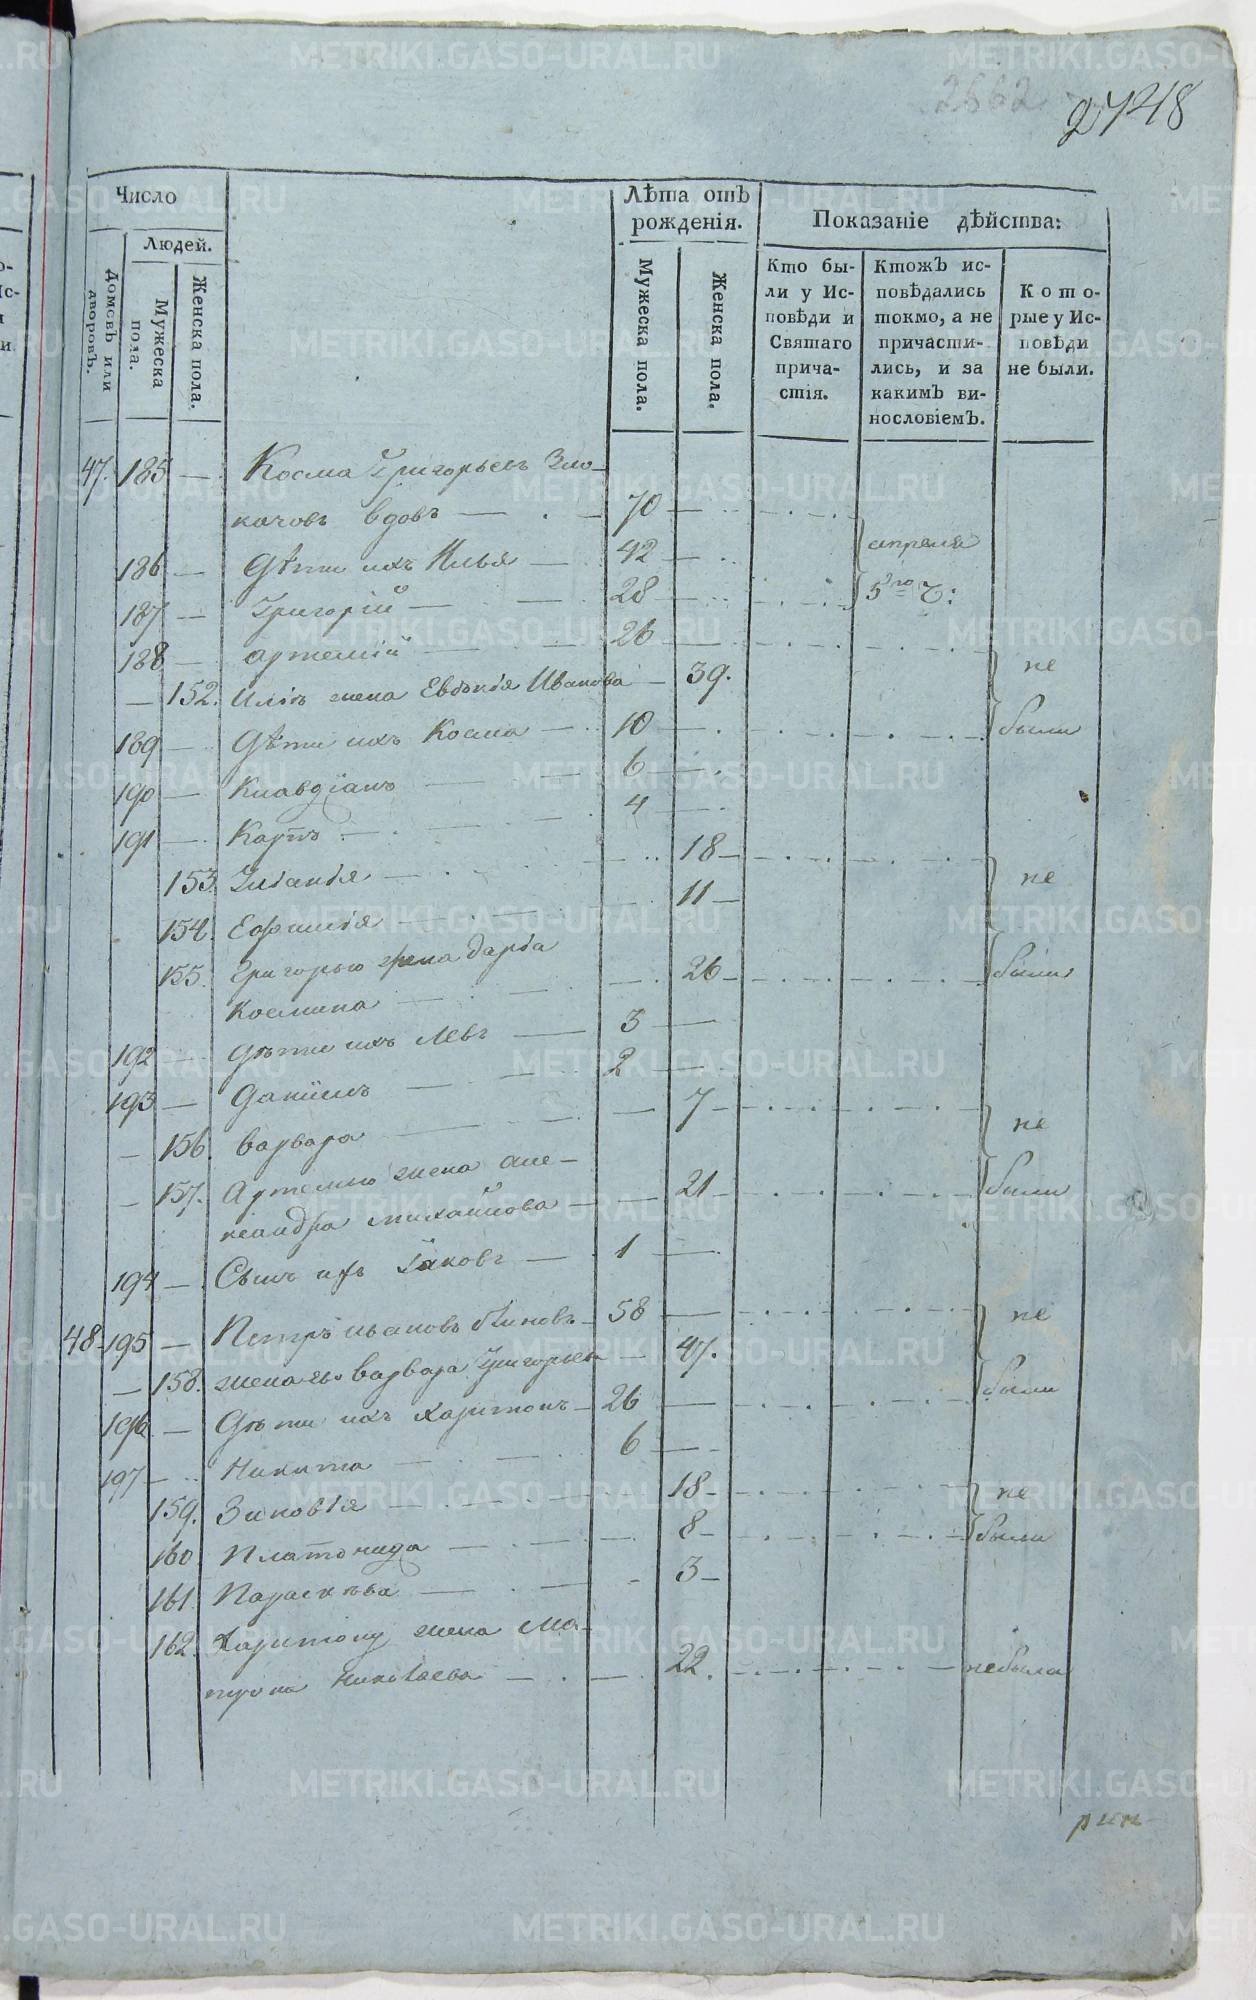 2662
2718
Число
Людей.
Домовъ или дворовъ.
Мужеска пола.
Женска пола.
Лѣта отъ рожденія.
Мужеска пола.
Женска пола.
Показаніе дѣйства:
Кто были у Исповѣди и Святаго причастія.
Ктожъ исповѣдались токмо, а не причастились, и за какимъ винословіемъ.
Которые у Исповѣди не были.
47. 185 — Косма Григорьевъ Зло-
качовъ вдовъ — 70 —
186 — Дѣти ихъ Илья — 42 — апреля
187 — Григорій — 28 — 5го ч:
188 — Артемій — 26 — не
— 152. Иліи жена Евдокія Иванова — 39.
189 — Дѣти ихъ Косма — 10 — были
190 — Клавдіанъ — 6 —
191 — Карпъ — 4 —
153. — 18 — не
154. Ефимія — 11 —
155. Григорью жена Дарія
Космина — 26 — были
192 — Дѣти ихъ Левъ — 3 —
193 — Даніилъ — 2 —
— 156. Варвара — 7 — не
— 157. Артемью жена Але-
ксандра Михайлова — 21 — были
194 — Сынъ ихъ Іаковъ — 1 —
48 195 — Петръ Ивановъ — 58 — не
— 158. жена его Варвара Григорьева — 47.
196 — Дѣти ихъ Харитонъ — 26 — были
197 — Никита — 6 —
159. Зиновія — 18 — не
160. Платонида — 8 — были
161. Параскѣва — 3 —
162. Харитону жена Ма-
трона Николаева — 22. — небыла